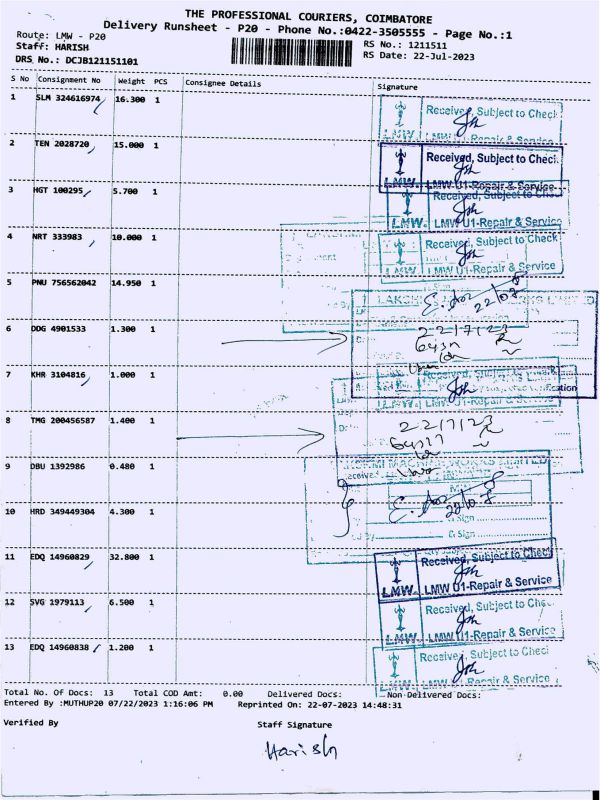 THE PROFESSIONAL COURIERS, COIMBATORE
Delivery Runsheet - P20 - Phone No.:0422-3505555 - Page No.:1
Route: LMW - P20
RS No.: 1211511
Staff: HARISH
RS Date: 22-Jul-2023
DRS No.: DCJB121151101
S No Consignment No Weight PCS Consignee Details Signature
1 SLM 324616974 16.300 1
Received, Subject to Check
LMW. LMW U1-Repair & Service
2 TEN 2028720 15.000 1
Received, Subject to Check
LMW. LMW U1-Repair & Service
3 HGT 100295 5.700 1
Received, Subject to Check
LMW. LMW U1-Repair & Service
4 NRT 333983 10.000 1
Received, Subject to Check
LMW U1-Repair & Service
5 PNU 756562042 14.950 1
22/07
6 DDG 4901533 1.300 1
22/7/23
7 KHR 3104816 1.000 1
Received, Subject to
LMW U1-Repair &
8 TMG 200456587 1.400 1
22/7/23
9 DBU 1392986 0.480 1
10 HRD 349449304 4.300 1
Sign
11 EDQ 14960829 32.800 1
Received, Subject to Check
LMW. LMW U1-Repair & Service
12 SVG 1979113 6.500 1
Received, Subject to Chec
LMW. LMW U1-Repair & Service
13 EDQ 14960838 1.200 1
Received, Subject to Checi
LMW. LMW U1-Repair & Service
Total No. Of Docs: 13 Total COD Amt: 0.00 Delivered Docs: Non-Delivered Docs:
Entered By :MUTHUP20 07/22/2023 1:16:06 PM Reprinted On: 22-07-2023 14:48:31
Verified By Staff Signature
Harish